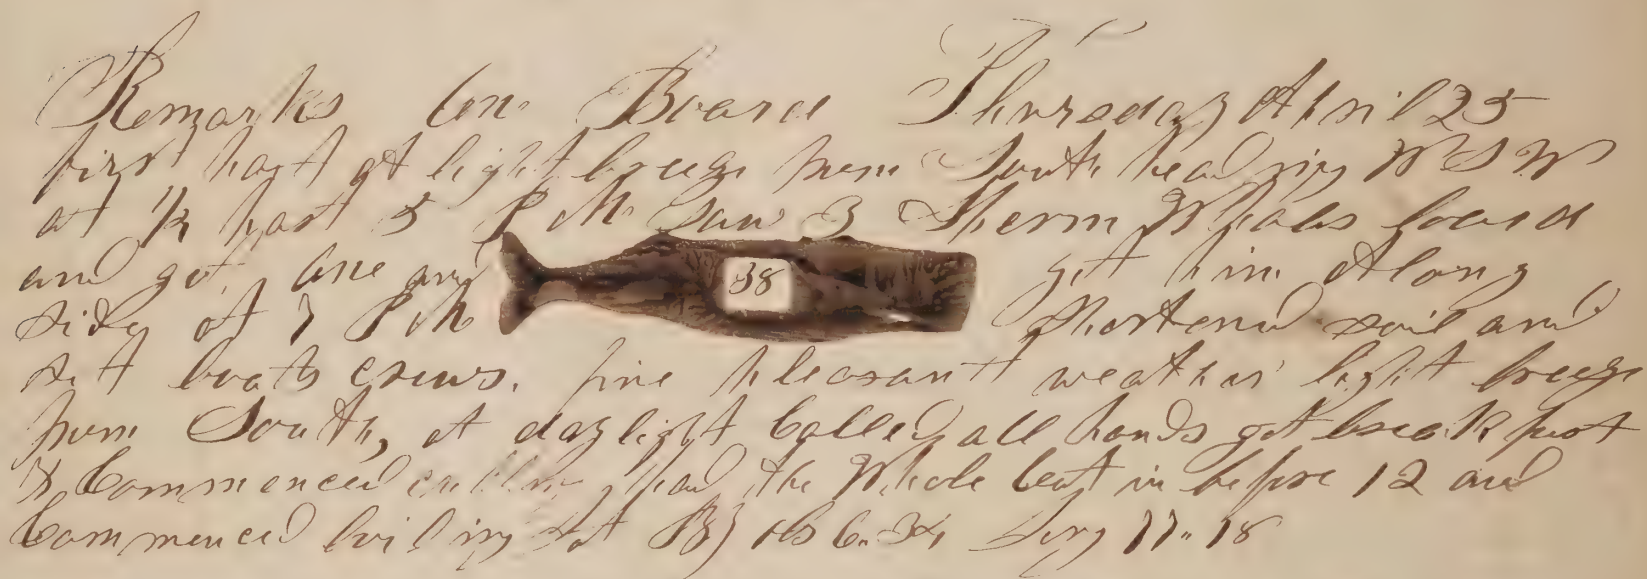 Remarks on Board Thursday April 25
first part of light breeze from South heading W S W
at ½ past 5 P M saw 3 Sperm Whales lowerd
and got one and 38 got him Along
side at 7 P M Shortend sail and
set boats crews. fine pleasant weather light breeze
from South, at daylight Called all hands got breakfast
& Commenced cutting had the Whole Cut in before 12 and
Commenced boiling Lat By obs 6.34 Long 77.18